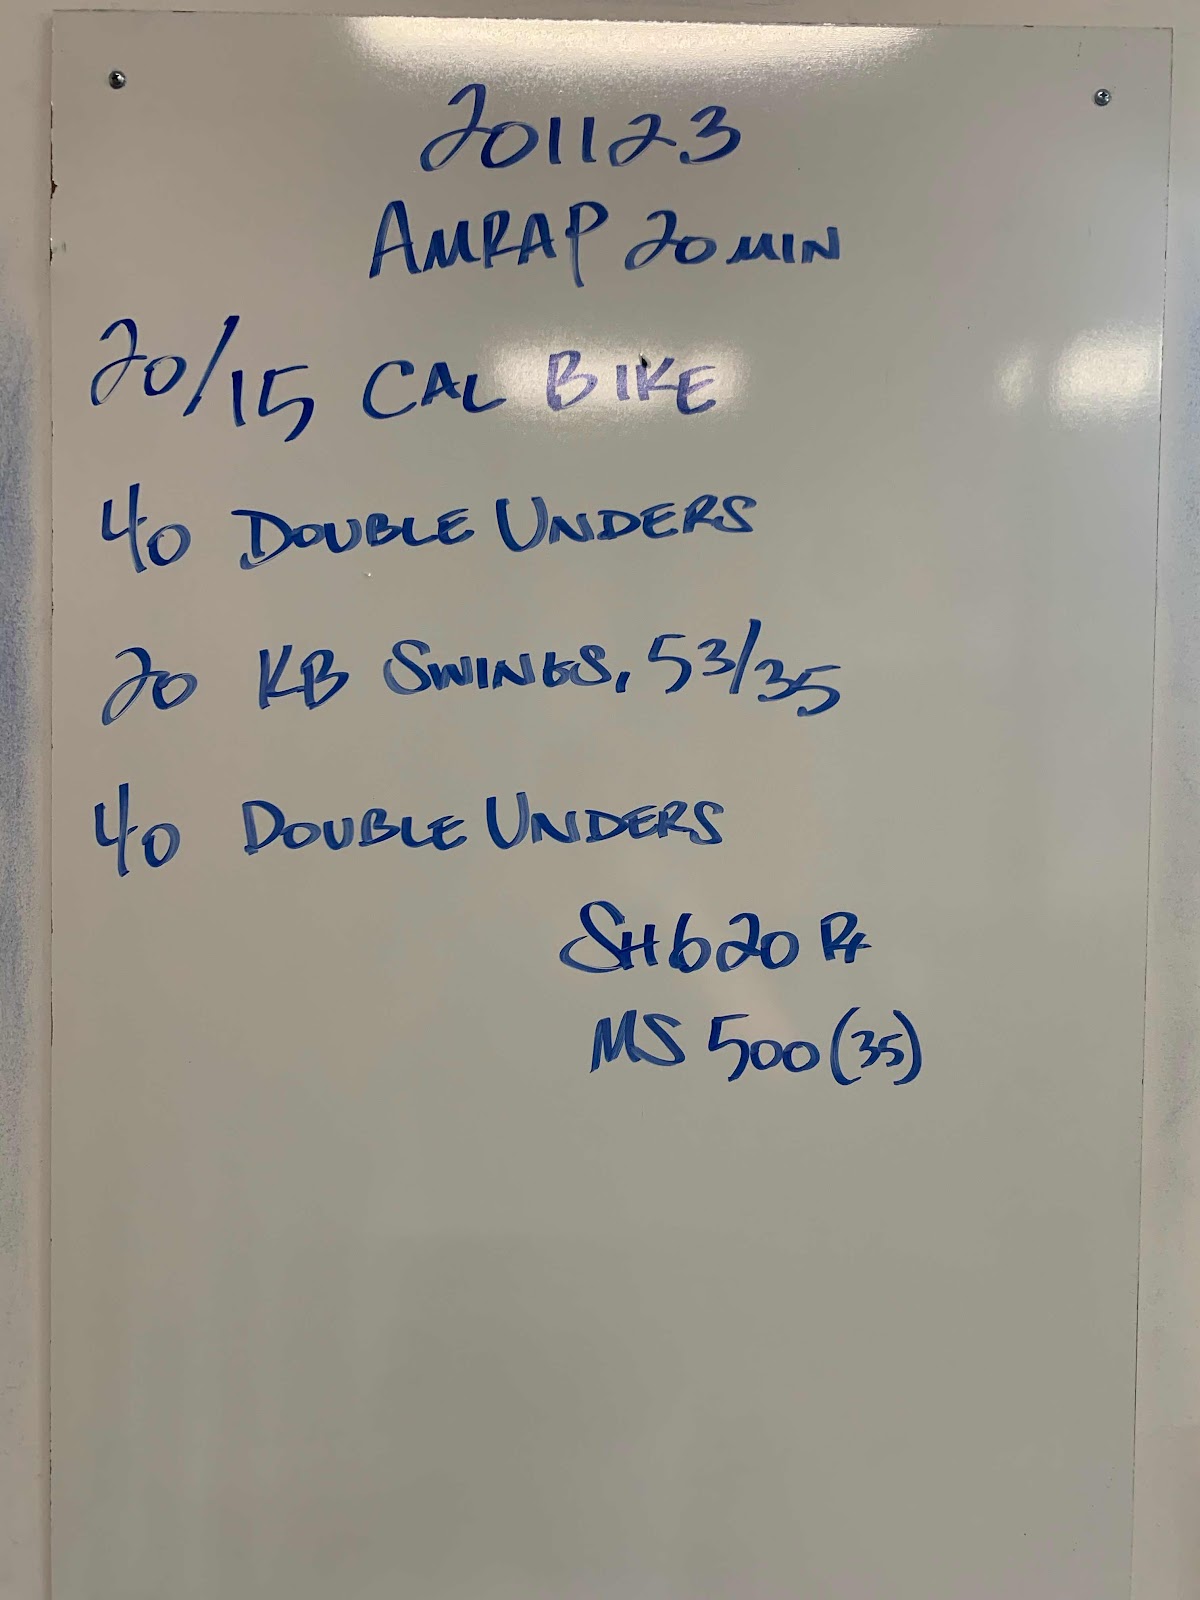 201123
AMRAP 20 MIN
20/15 CAL BIKE
40 DOUBLE UNDERS
20 KB SWINGS, 53/35
40 DOUBLE UNDERS
SH 620 Rx
MS 500 (35)